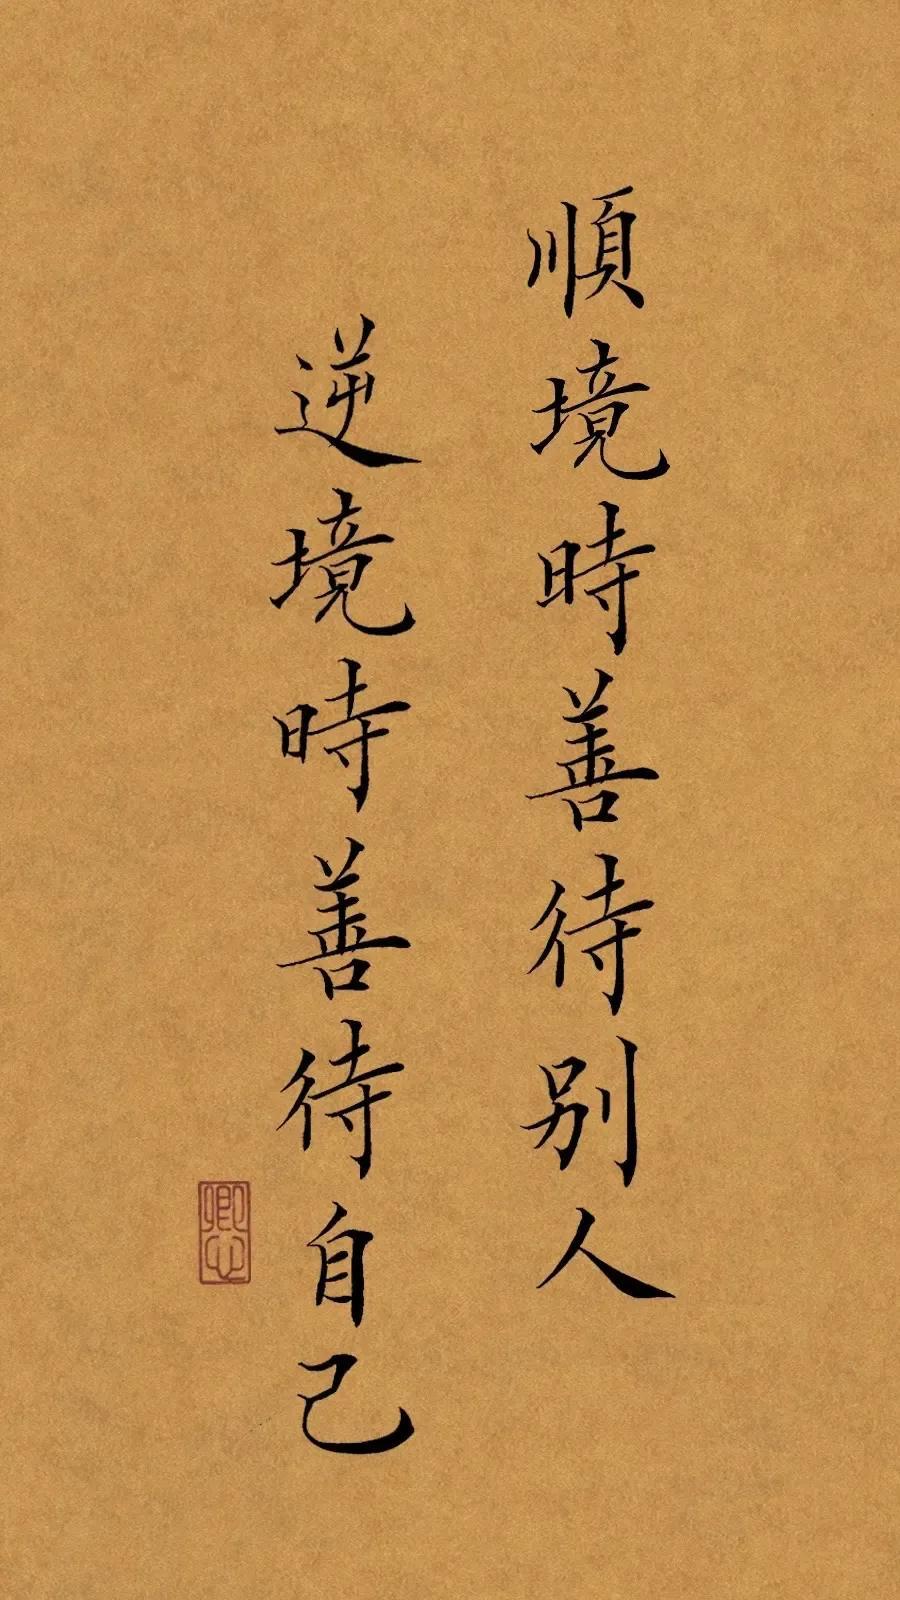 順境時善待别人
逆境時善待自己
卿心